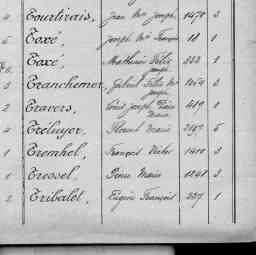 4 Tourtirais, Jean Mie Joseph, 1470 3
5 Toxé, Joseph Mie François 18 1
Toxé, Mathurin Félix Joseph 222 1
3 Tranchemer, Gabriel Félix Mie Joseph 3
2 Travers, Louis Joseph Pierre Marie 419 1
4 Tréluyer, Florent Marie 5
1 Tremhel, François Victor 1410 3
1 Tressel, Pierre Marie 1248 3
2 Tribalet, Eugène François 227 1